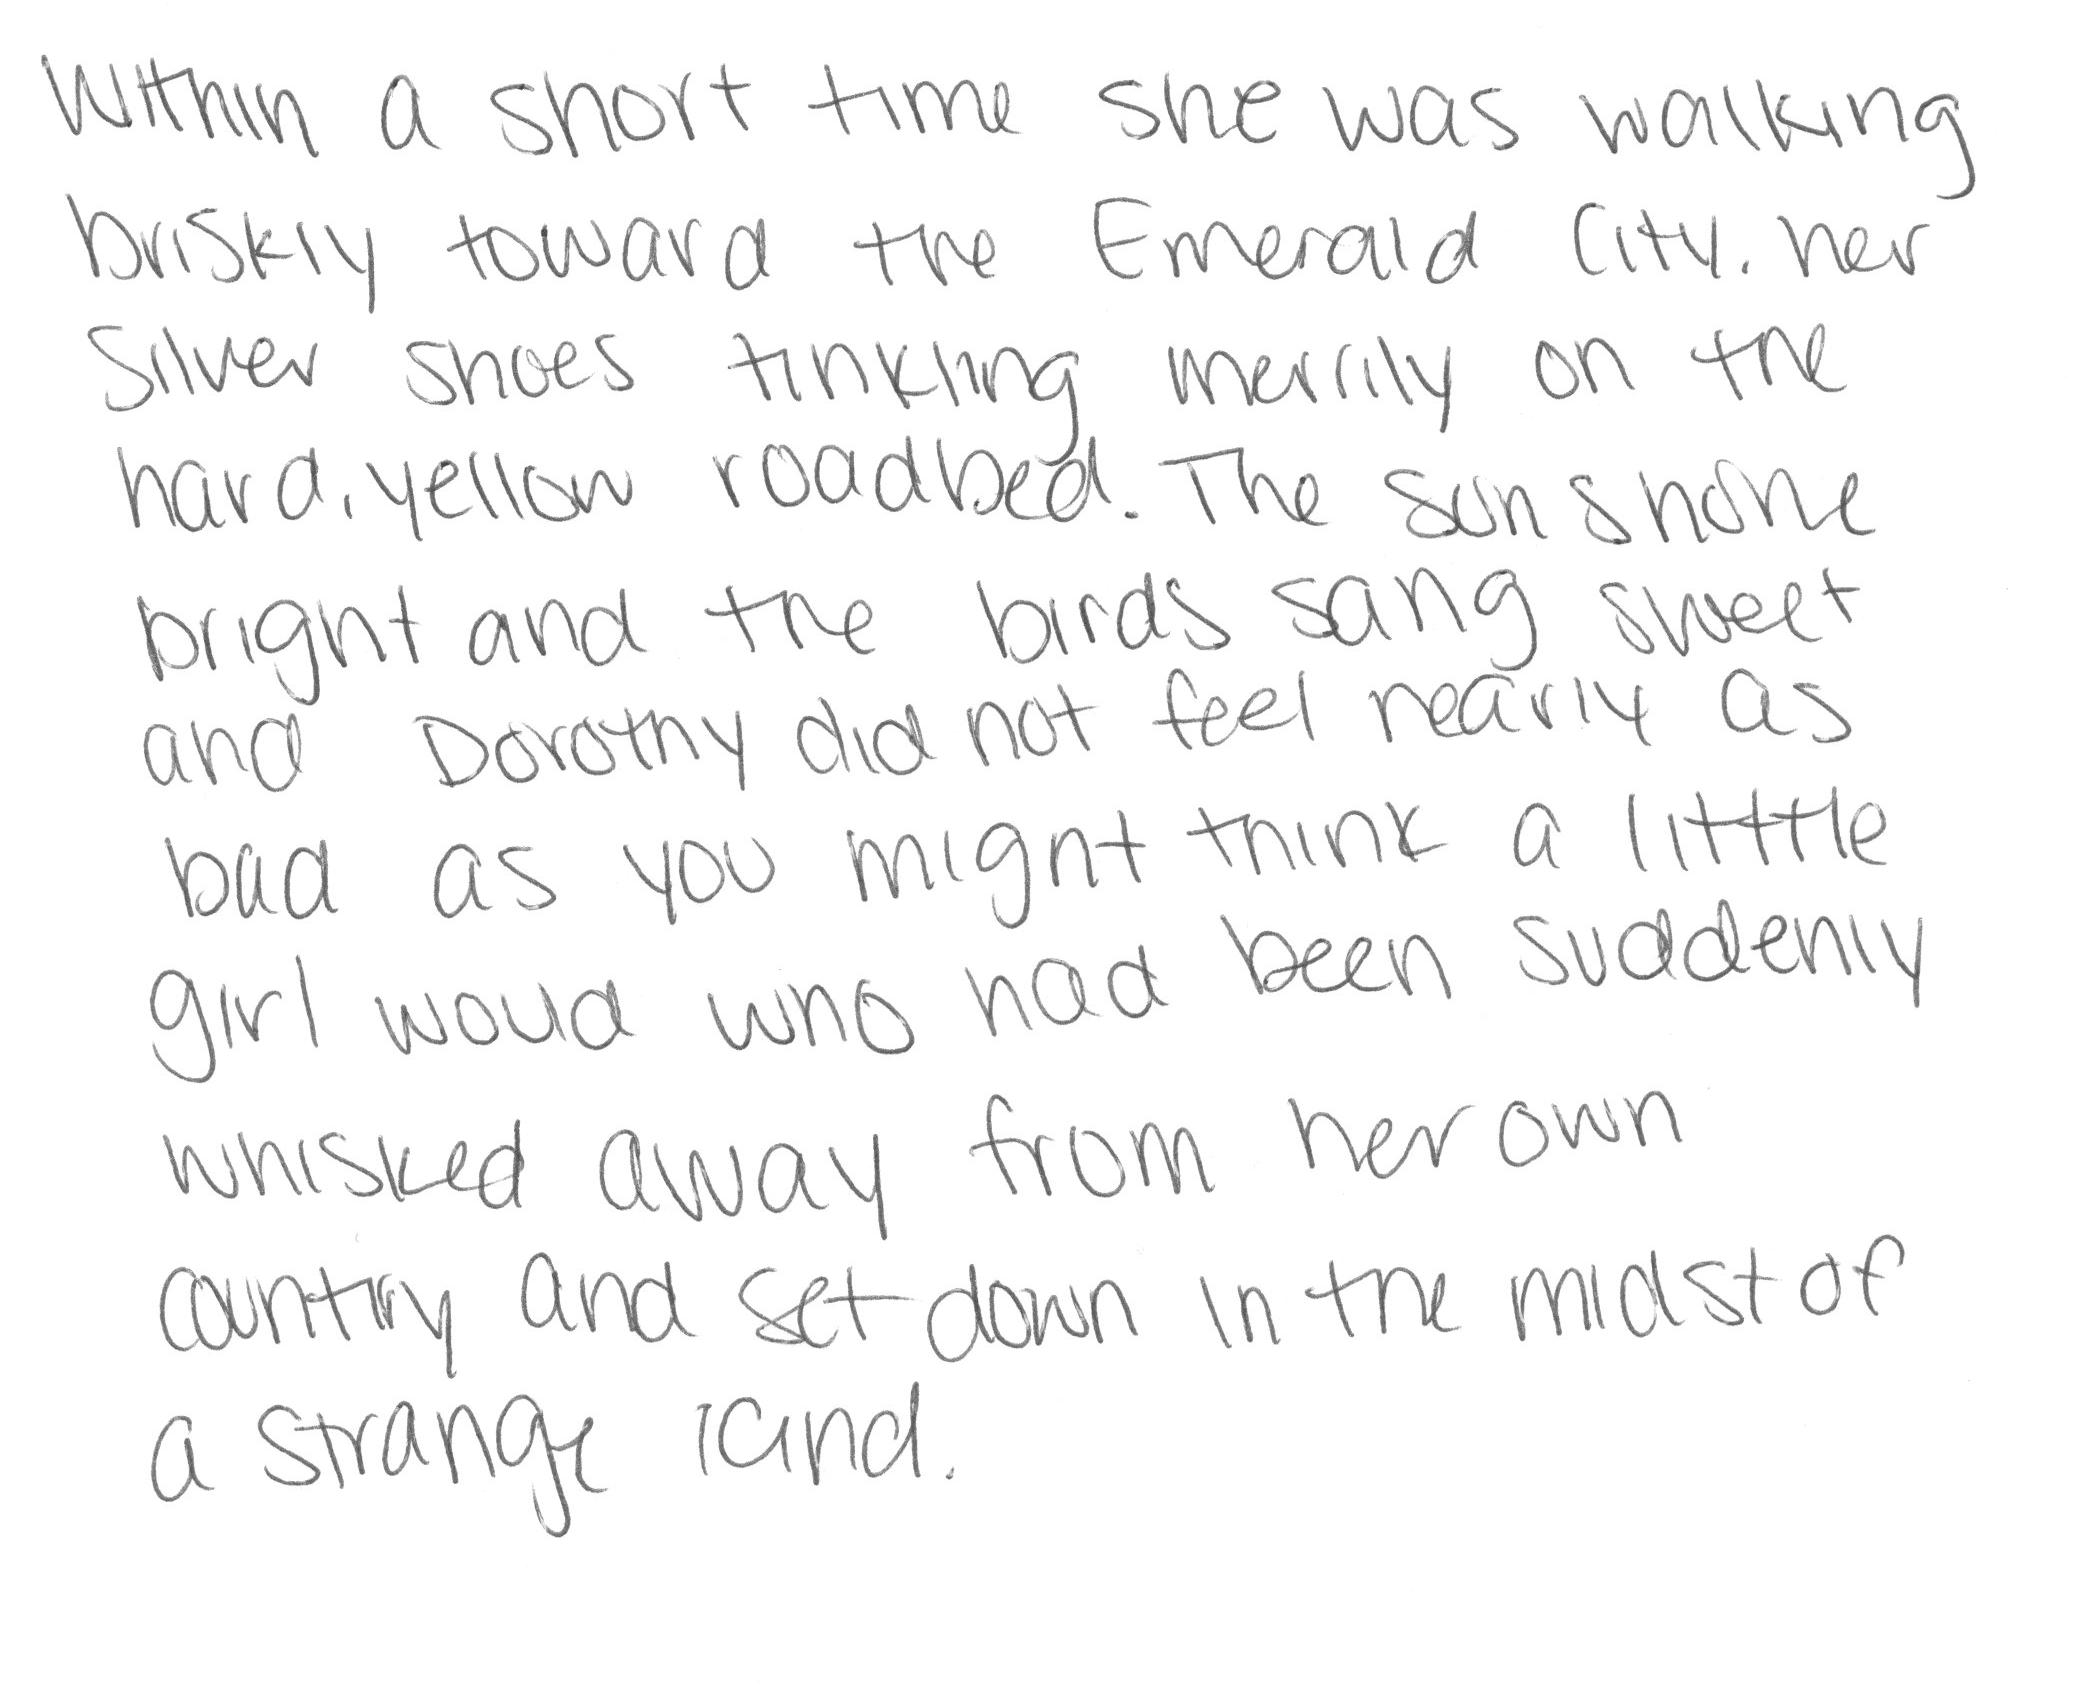 Within a short time she was walking
briskly toward the Emerald City. her
Silver shoes tinkling merrily on the
hard, yellow roadbed. The sun shone
bright and the birds sang sweet
and Dorothy did not feel nearly as
bad as you might think a little
girl would who had been suddenly
whisked away from her own
country and set down in the midst of
a strange land.